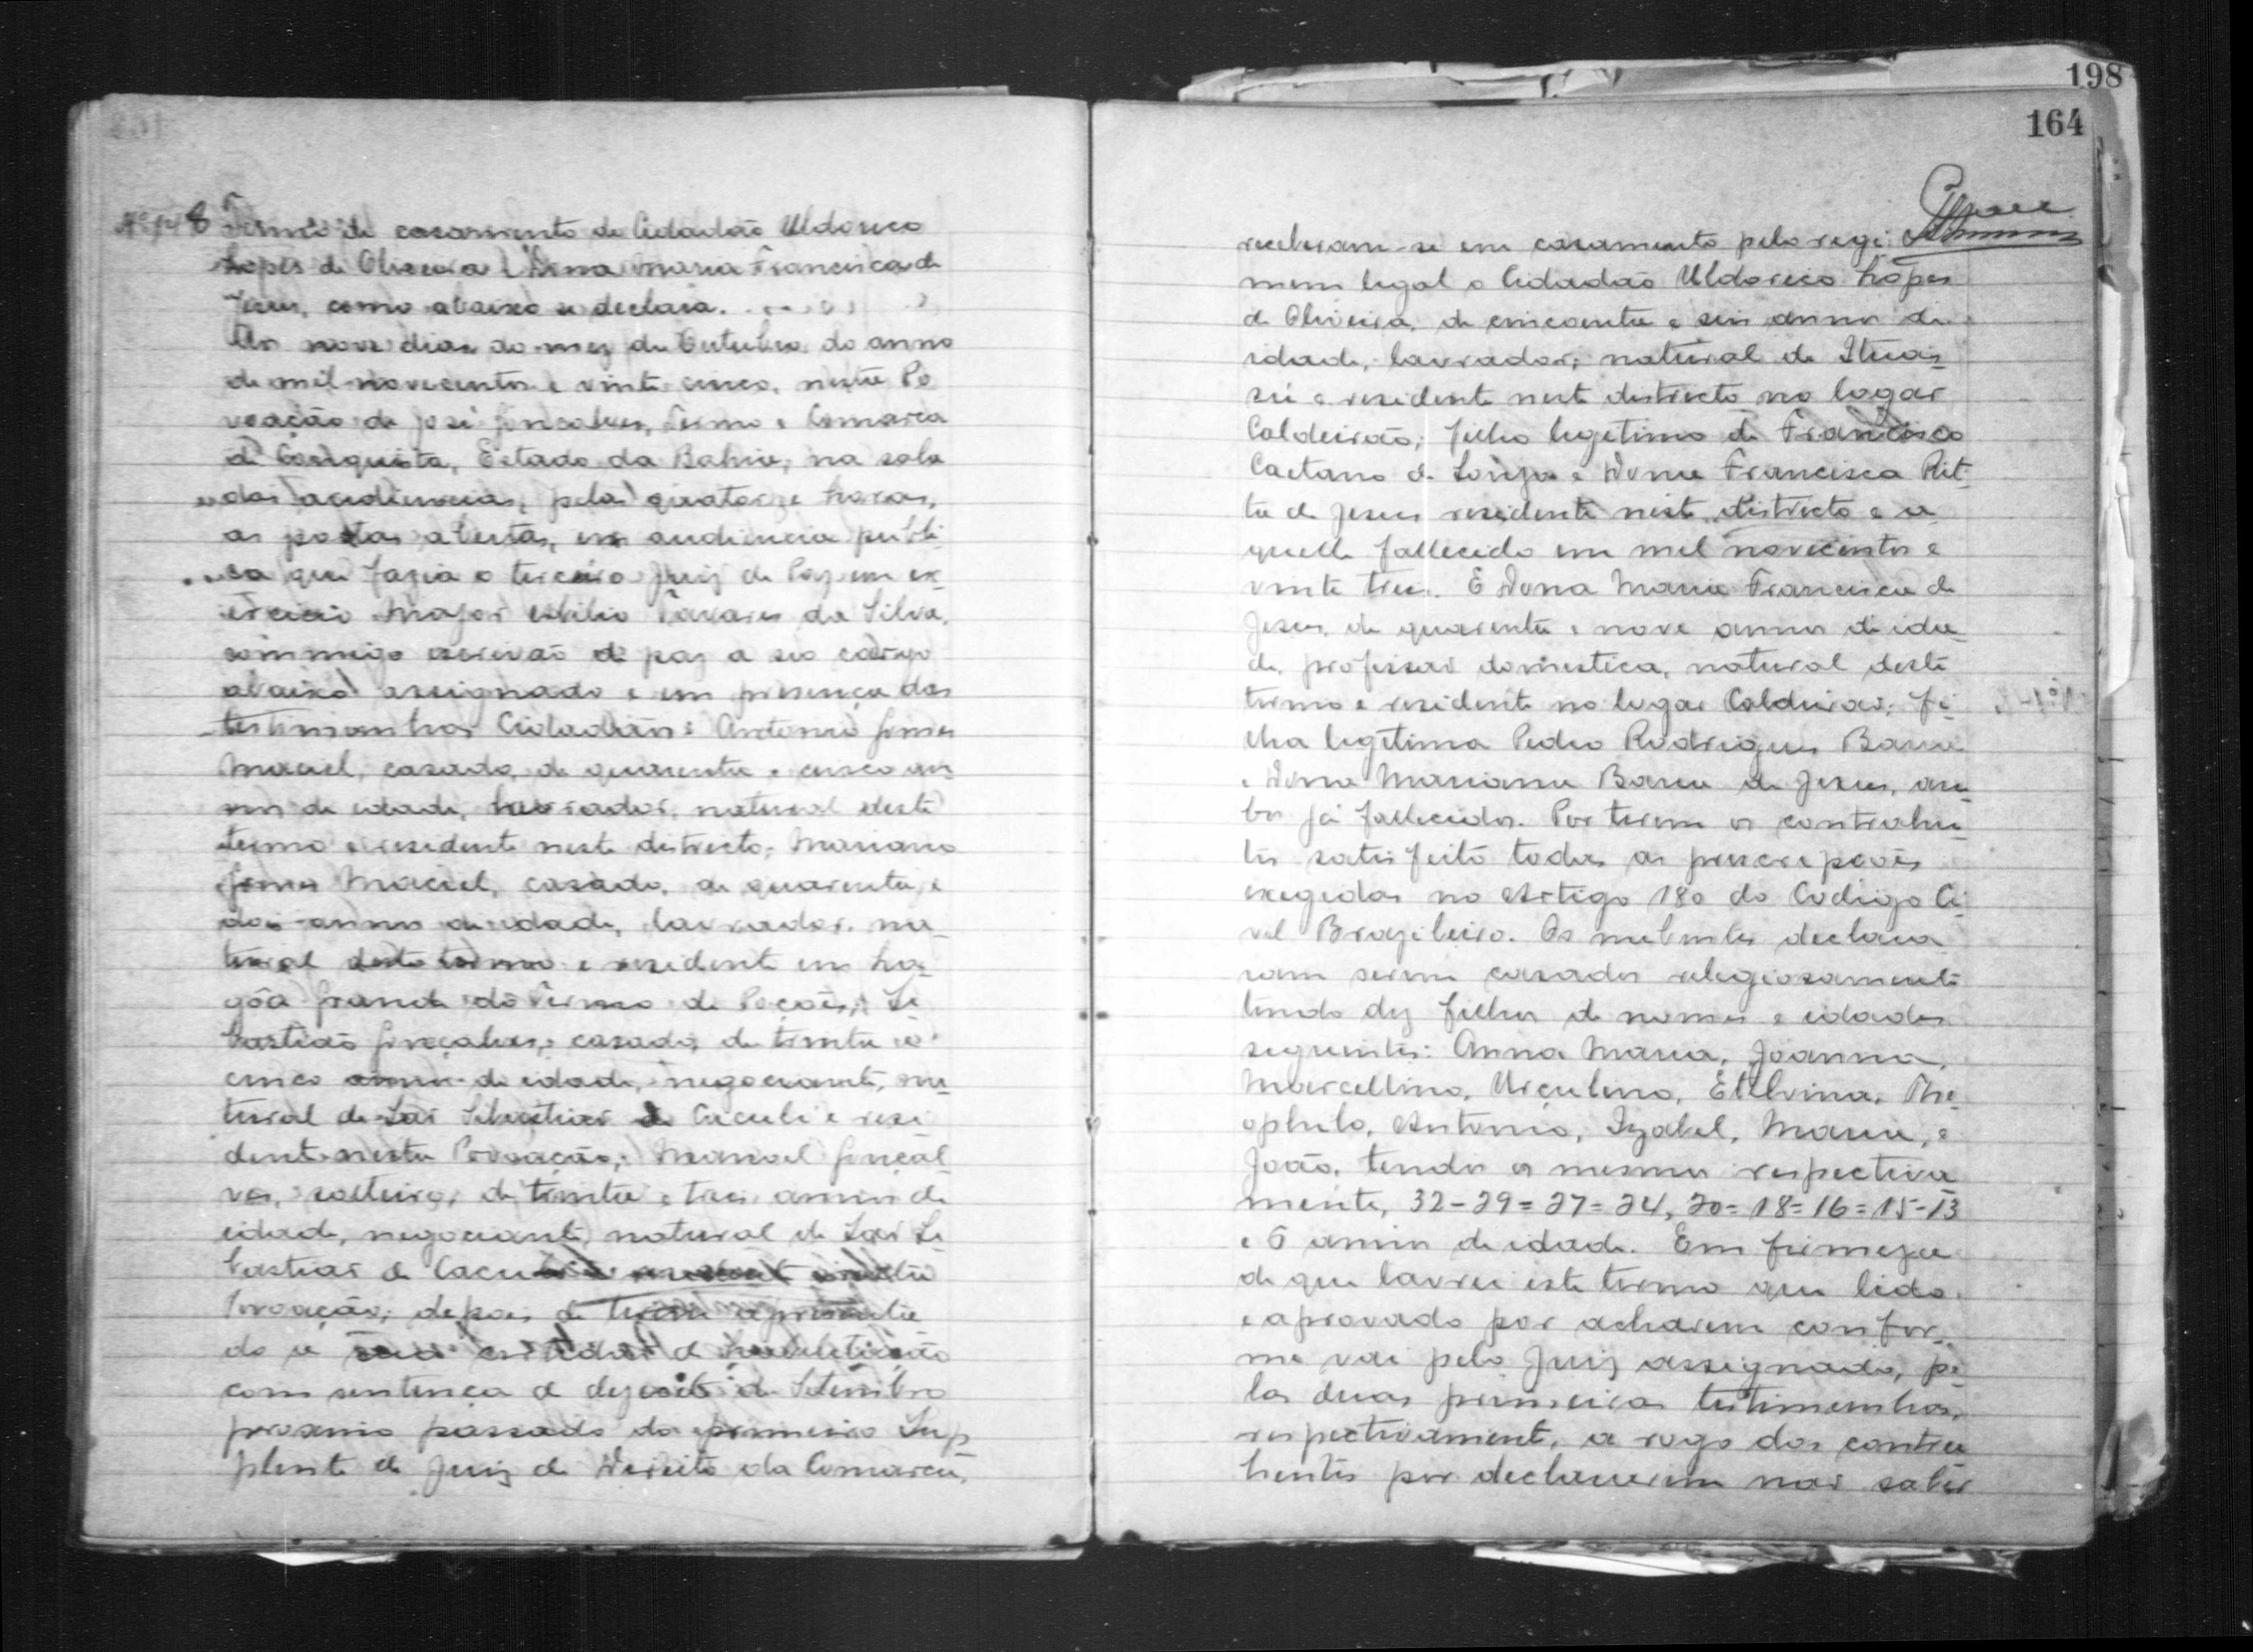 198
164
Nº 148 Termo de casamento do Cidadão Uldorico
Lopes de Oliveira e Dona Maria Francisca de
Jesus, como abaixo se declara.
Aos nove dias do mez de Outubro do anno
de mil novecentos e vinte cinco, nesta Po
voação de José Gonçalves, Termo e Comarca
de Conquista, Estado da Bahia, na sala
das audiencias, pelas quatorze horas,
as portas abertas, em audiencia publi
ca que fazia o terceiro Juiz de Paz em ex-
ercicio Major Tavares da Silva,
commigo escrivão de paz a seo cargo
abaixo assignado e em presença das
testimonhas Cidadãos: Antonio Gomes
Maciel, casado, de quarenta e cinco an-
nos de idade, lavrador, natural deste
termo e residente neste districto; Mariano
Gomes Maciel, casado, de quarenta e
dois annos de idade, lavrador, na-
tural deste termo e residente em La-
gôa Grande do Termo de Poções; Se
bastião Gonçalves, casado, de trinta e
cinco annos de idade, negociante, na
tural de São Sebastião de Caculé e resi
dente nesta Povoação; Manoel Gonçal
ves, solteiro, de trinta e tres annos de
idade, negociante, natural de São Se
bastião de Caculé e residente nesta
Povoação; depois de terem apresenta
do a certidão de habilitação
com sentença de dezoito de Setembro
proximo passado do primeiro Sup
plente de Juiz de Direito da Comarca,
receberam-se em casamento pelo regi-
mem legal o Cidadão Uldorico Lopes
de Oliveira, de cincoenta e seis annos de
idade, lavrador, natural de Ituas-
sú e residente neste districto no logar
Caldeirão; filho legitimo de Francisco
Caetano de Souza e Dona Francisca Rit-
ta de Jesus residente neste districto e a
quelle fallecido em mil novecentos e
vinte tres. E Dona Maria Francisca de
Jesus, de quarenta e nove annos de ida-
de, professar domestica, natural deste
termo e residente no logar Caldeirão; fi-
lha legitima Pedro Rodrigues
e Dona Marianna de Jesus, am-
bos já fallecidos. Por terem os contrahen-
tes satisfeito todas as prescrepções
exegidas no Artigo 180 do Codigo Ci-
vil Brazileiro. Os nubentes declara
ram serem casados relegiosamente
tendo dez filhos de nomes e idades
seguintes: Anna Maria, Joanna,
Marcellino, Urçulino, Etelvina, The-
ophilo, Antonio, Izabel, Maria, e
João, tendo os mesmos respectiva
mente, 32-29=27=24, 20=18=16=15-13
e annos de idade. Em firmeza
de que lavrei este termo que lido
e aprovado por acharem confor-
me vai pelo Juiz assignado, pe-
las duas primeiras testimonhas,
respectivamente, a rogo dos contra
hentes por declararem não saber